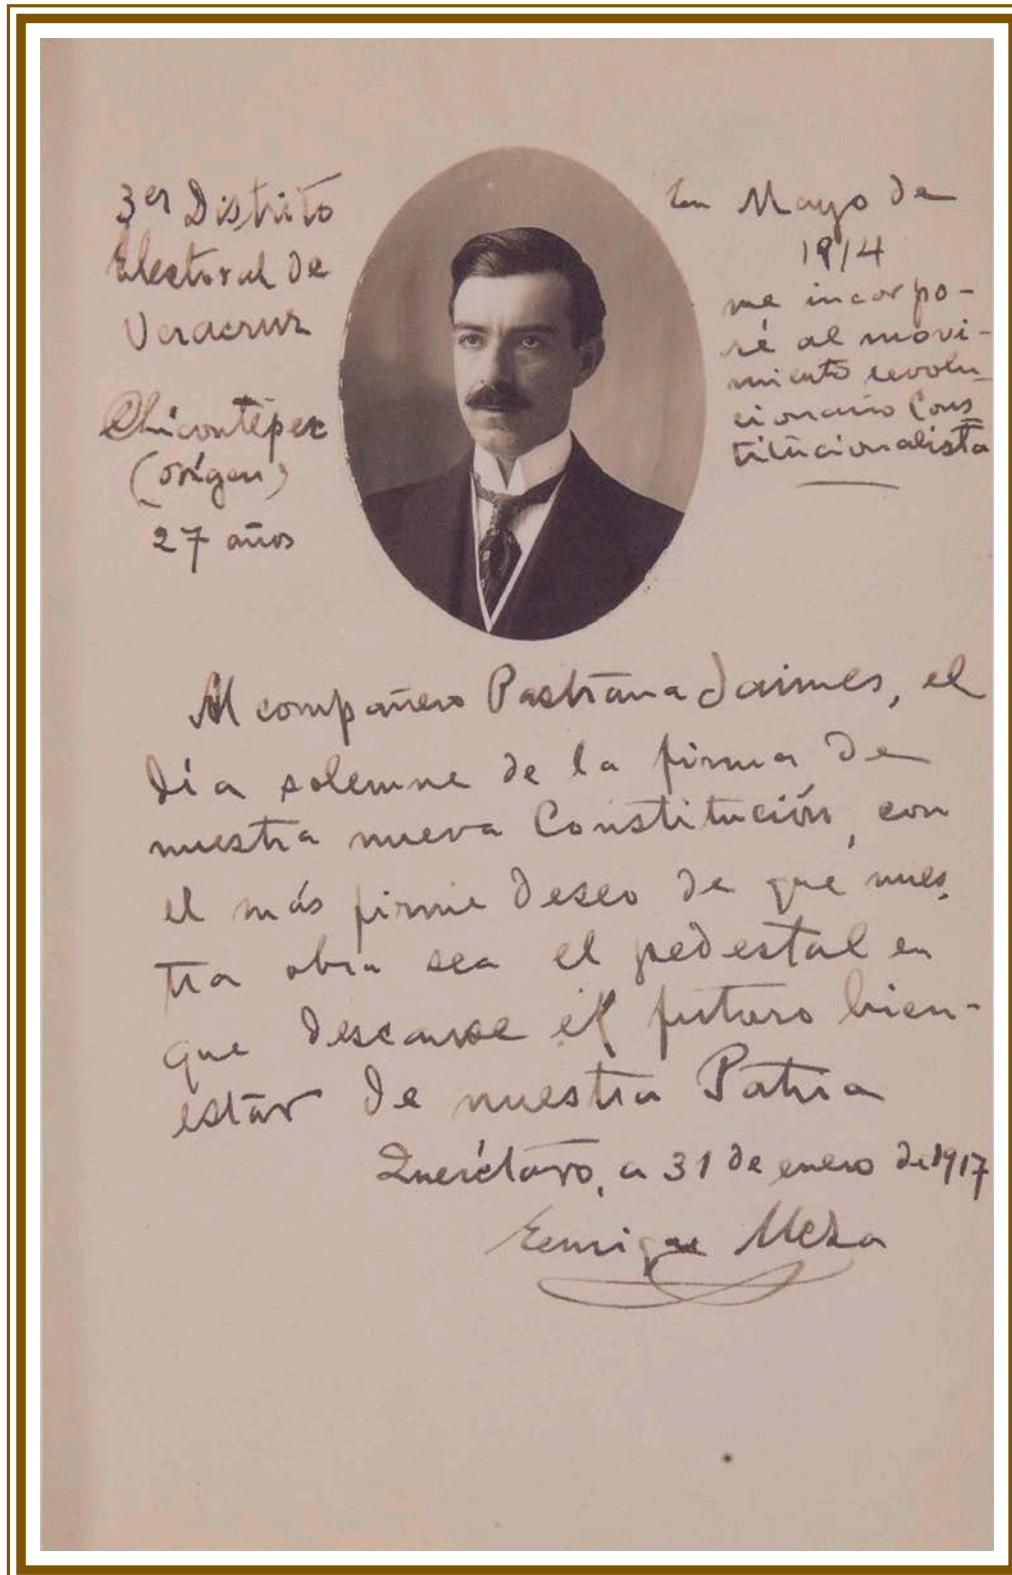 3er Distrito
Electoral de
Veracruz
Chicontepec
(orígen)
27 años
En Mayo de
1914
me incorpo-
ré al movi-
miento revolu-
cionario Cons
titucionalista
Al compañero Pastrana Jaimes, el
día solemne de la firma de
nuestra nueva Constitución, con
el más firme deseo de que nues-
tra obra sea el pedestal en
que descanse el futuro bien-
estar de nuestra Patria
Querétaro, a 31 de enero de 1917
Enrique Meza